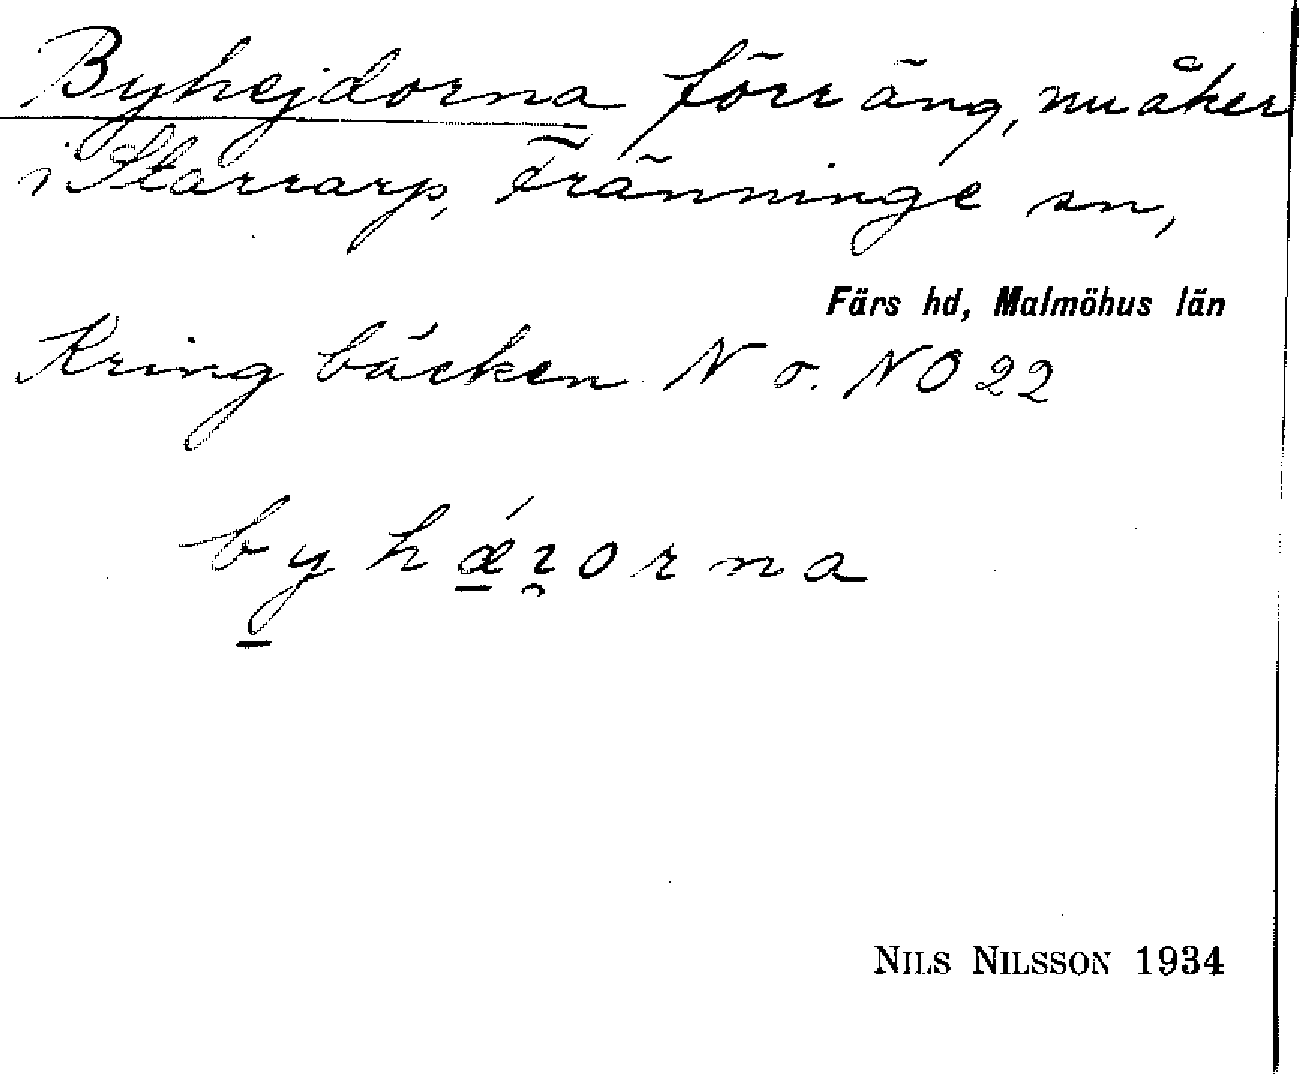 Byhejdorna förr äng, nu åker
i Starrarp, Tränninge sn,
Färs hd, Malmöhus län
Kring bäcken N o. NO 22
by hǽꝛorna
NILS NILSSON 1934